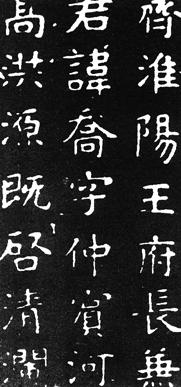 齊淮陽王府長兼
君諱喬字仲賓河
高洪源既啓清瀾